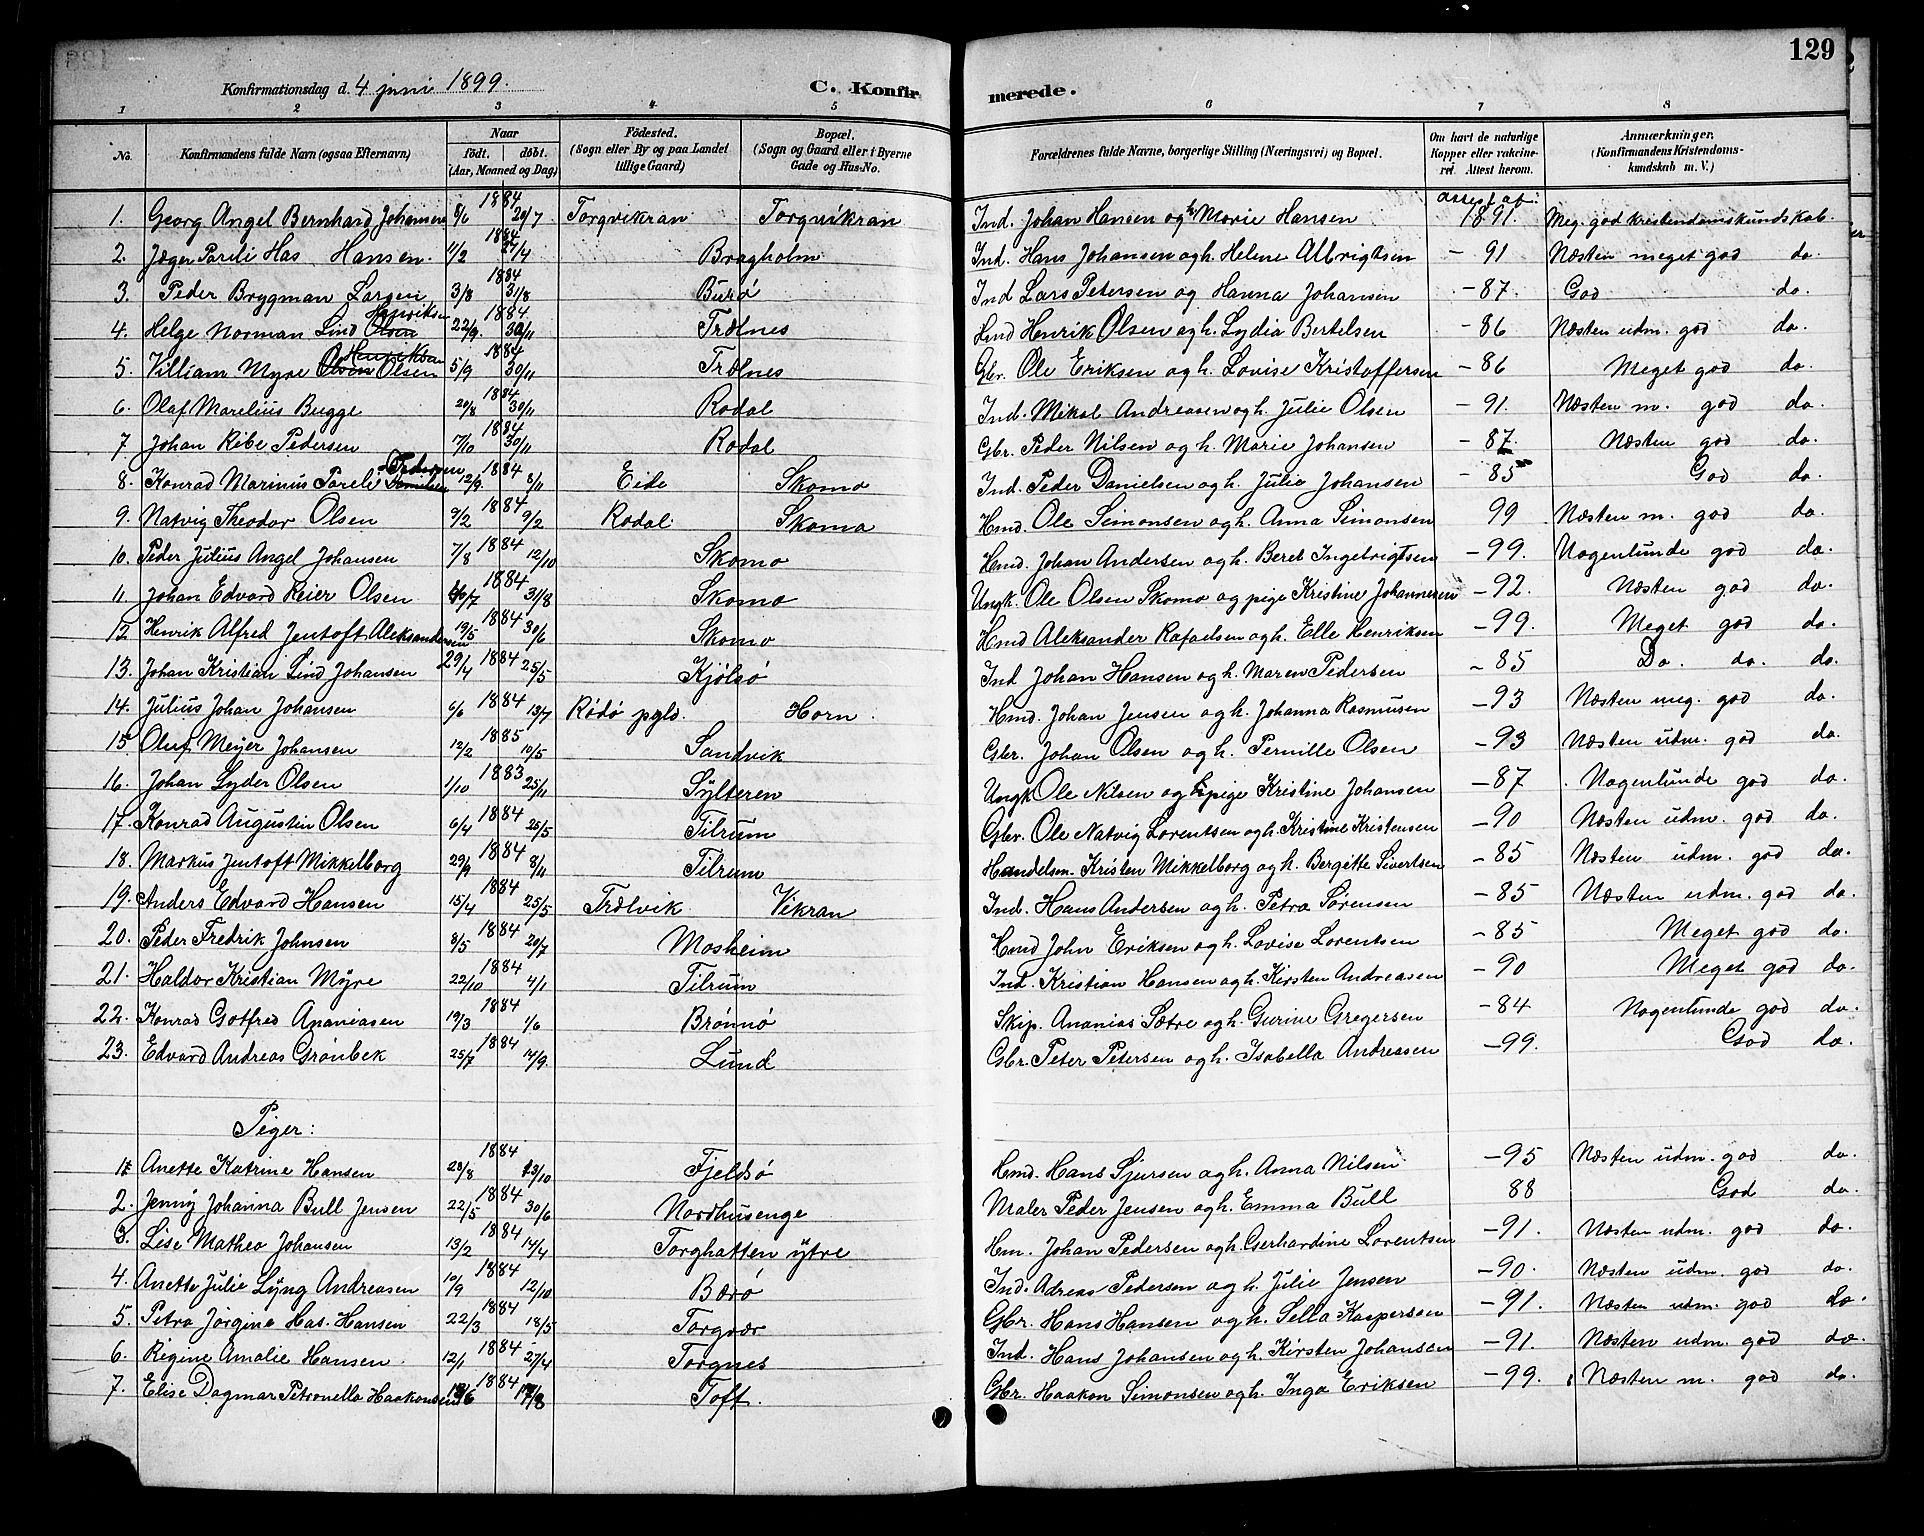 129
Konfirmationsdag d. 4 juni 1899. C. Konfirmerede.
1 2 3 4 5 6 7 8
No. Konfirmandens fulde Navn (ogsaa Efternavn) Naar födt. döbt. (Aar, Maaned og Dag) Födested. (Sogn eller By og paa Landet tillige Gaard) Bopæl. (Sogn og Gaard eller i Byerne Gade og Hus-No. Forældrenes fulde Navne, borgerlige Stilling (Næringsvei) og Bopæl. Om havt de naturlige Kopper eller vakcineret. Attest herom. Anmærkninger. (Konfirmandens Kristendomskundskab m. V.)
1. Georg Angel Bernhard Johansen 8/6 1884 20/7 Torgvikran Torgvikran Ind. Johan Hansen og h. Marie Hansen attest af 1891. Meg. god kristendomskundskab.
2. Jæger Pareli Has Hansen. 11/2 1884 27/4 Bragholm Ind. Hans Johansen og h. Helene Albrigtsen - 91 Næsten meget god do.
3. Peder Brygman Larsen 3/8 1884 31/8 Burö Ind Lars Petersen og Hanna Johansen - 87. God do.
4. Helge Norman Lind Olsen Henriksen 22/9. 1884 30/11 Trælnes Hmd Henrik Olsen og h. Lydia Bertelsen - 86 Næsten udm. god do.
5. Villiam Myre Olsen Henriksen Olsen 5/9 1884 30/11 Trælnes Gbr. Ole Eriksen og h. Lovise Kristoffersen - 86 Meget god do.
6. Olaf Marelius Bugge 20/8 1884 30/11 Rodal Ind. Mikal Andreasen og h. Julie Olsen - 91. Næsten m. god do.
7 Johan Ribe Pedersen 17/10 1884 30/11 Rodal Gbr. Peder Nilsen og h. Marie Johansen - 87. Næsten god do.
8. Konrad Marinius Pareli Pedersen 12/9. 1884 8/11 Eide Skomo Ind. Peder Danielsen og h. Julie Johansen - 85 God do.
9. Natvig Theodor Olsen 9/2 1884 9/2 Rodal Skomo Hmd. Ole Simonsen og h. Anna Simonsen 99 Næsten m. god do.
10. Peder Julius Angel Johansen 7/8 1884 12/10 Skomo Hmd. Johan Andersen og h. Beret Ingebrigtsen - 99. Nogenlunde god do.
11. Johan Edvard Reier Olsen 1884 31/8 Skomo Ungk. Ole Olsen Skomo og pige Kristine Johannesen - 92. Næsten god do.
12. Henrik Alfred Jentoft Aleksandersen 19/5 1884 30/6 Skomo Hmd Aleksander Rafaelsen og h. Elle Henriksen - 99. Meget god do.
13. Johan Kristian Lind Johansen 29/4 1884 25/5 Kjölsö Ind Johan Hansen og h. Maren Pedersen - 85 Do. do. do.
14. Julius Johan Johansen 6/6 1884 13/7 Rödö pgld. Horn. Hmd. Johan Jensen og h. Johanna Rasmusen - 93 Næsten meg. god do.
15. Oluf Meyer Johansen 12/2 1885 10/5 Sandvik Gbr. Johan Olsen og h. Pernille Olsen - 93 Næsten udm. god do.
16. Johan Lyder Olsen 1/10 1883 25/11 Sylteren Ungk Ole Nilsen og pige Kristine Johansen - 87 Nogenlunde god do.
17. Konrad Augustin Olsen 6/4 1884 25/5 Tilrum Gbr. Ole Natvig Lorentsen og h. Kristine Kristensen - 90 Næsten udm. god do.
18. Markus Jentoft Mikkelborg 29/9 1884 8/11 Tilrum Handelsm. Kristen Mikkelborg og h. Bergitte Sivertsen - 85 Næsten udm. god do.
19. Anders Edvard Hansen 15/4 1884 25/5 Trælvik Vikran Ind. Hans Andersen og h. Petra Sörensen - 85 Næsten udm. god do.
20. Peder Fredrik Johnsen 8/5 1884 20/7 Mosheim Hmd John Eriksen og h. Lovise Lorentsen - 85 Meget god do.
21. Haldor Kristian Myre 22/10 1884 4/1 Tilrum Ind. Kristian Hansen og h. Kirsten Andreasen - 90 Meget god do.
22. Konrad Gotfred Ananiasen 19/3 1884 1/6 Brönnö Skip. Ananias Sætre og h. Gurine Gregersen - 84 Nogenlunde god do.
23. Edvard Andreas Grönbek 25/7 1884 14/9. Lund Gbr. Peter Petersen og h. Isabella Andreasen - 99. God do.
Piger:
1. Anette Katrine Hansen 28/8 1884 13/10 Fjeldsö Hmd. Hans Sjursen og h. Anna Nilsen - 95 Næsten udm. god do.
2. Jenny Johanna Bull Jensen 22/5 1884 30/6 Nordhusenge Maler Peder Jensen og h. Emma Bull 88 God do.
3. Lise Mathea Johansen 13/2 1884 14/4 Torghatten ytre Hm. Johan Pedersen og h. Gerhardine Lorentsen - 91. Næsten udm. god do.
4. Anette Julie Lyng Andreasen 10/9 1884 12/10 Bærö Ind. Adreas Pedersen og h. Julie Jensen - 90. Næsten udm. god do.
5. Petra Jörgine Has. Hansen 22/3 1884 18/5 Torgvær Gbr. Hans Hansen og h. Sella Kaspersen - 91. Næsten udm. god do.
6. Regine Amalie Hansen. 12/1 1884 27/4 Torgnes Ind. Hans Johansen og h. Kirsten Johansen - 91. Næsten udm. god do.
7. Elise Dagmar Petronella Haakonsen 1884 Toft. Gbr. Haakon Simonsen og h. Inga Eriksen - 99. Næsten m. god do.